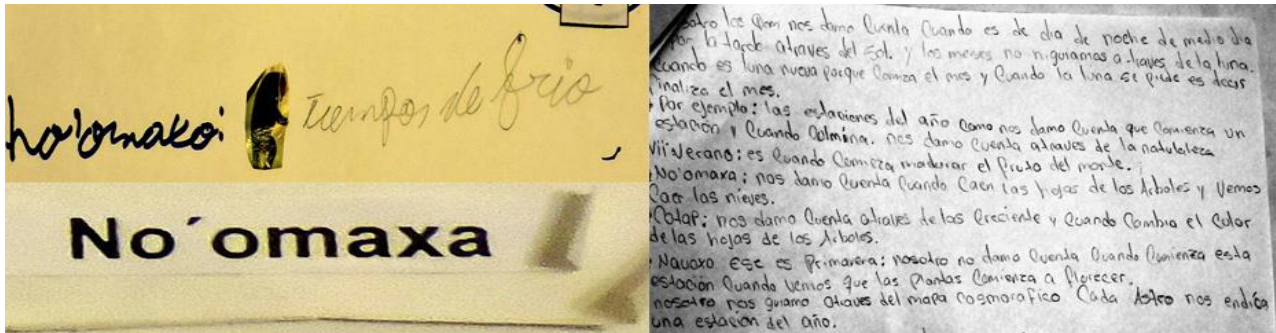 ho'omakoi
tiempos de frio
No´omaxa
los Qom nos damo Cuenta Cuando es de dia de noche de medio dia
Por la tarde atraves del sol. y los meses no niguiamos a traves de la luna.
Cuando es luna nueva porque Comiza el mes y Cuando la luna se pide es decir
finaliza el mes.
Por ejemplo: las estaciones del año Como nos damo Cuenta que Comienza un
estación y Cuando Culmina. nos damo Cuenta atraves de la natulaleza
Vii Verano: es Cuando Comieza madurar el fruto del monte.
No'omaxa: nos damo Cuenta Cuando Caen las hojas de los Arboles y Vemos
Caer las nieves.
Cotap: nos damo Cuenta atraves de las Creciente y Cuando Cambia el Color
de las hojas de los Arboles.
Nauoxo ese es Primavera: nosotro no damo Cuenta Cuando Comienza esta
estación Cuando vemos que las Plantas Comienza a florecer.
nosotro nos guiamo atraves del mapa Cosmorafico Cada Astro nos endica
una estación del año.